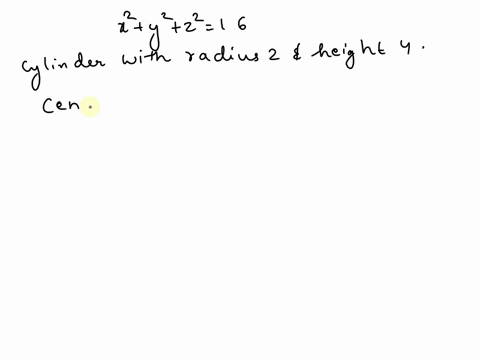 x²+y²+z²=16
cylinder with radius 2 & height 4.
Cen